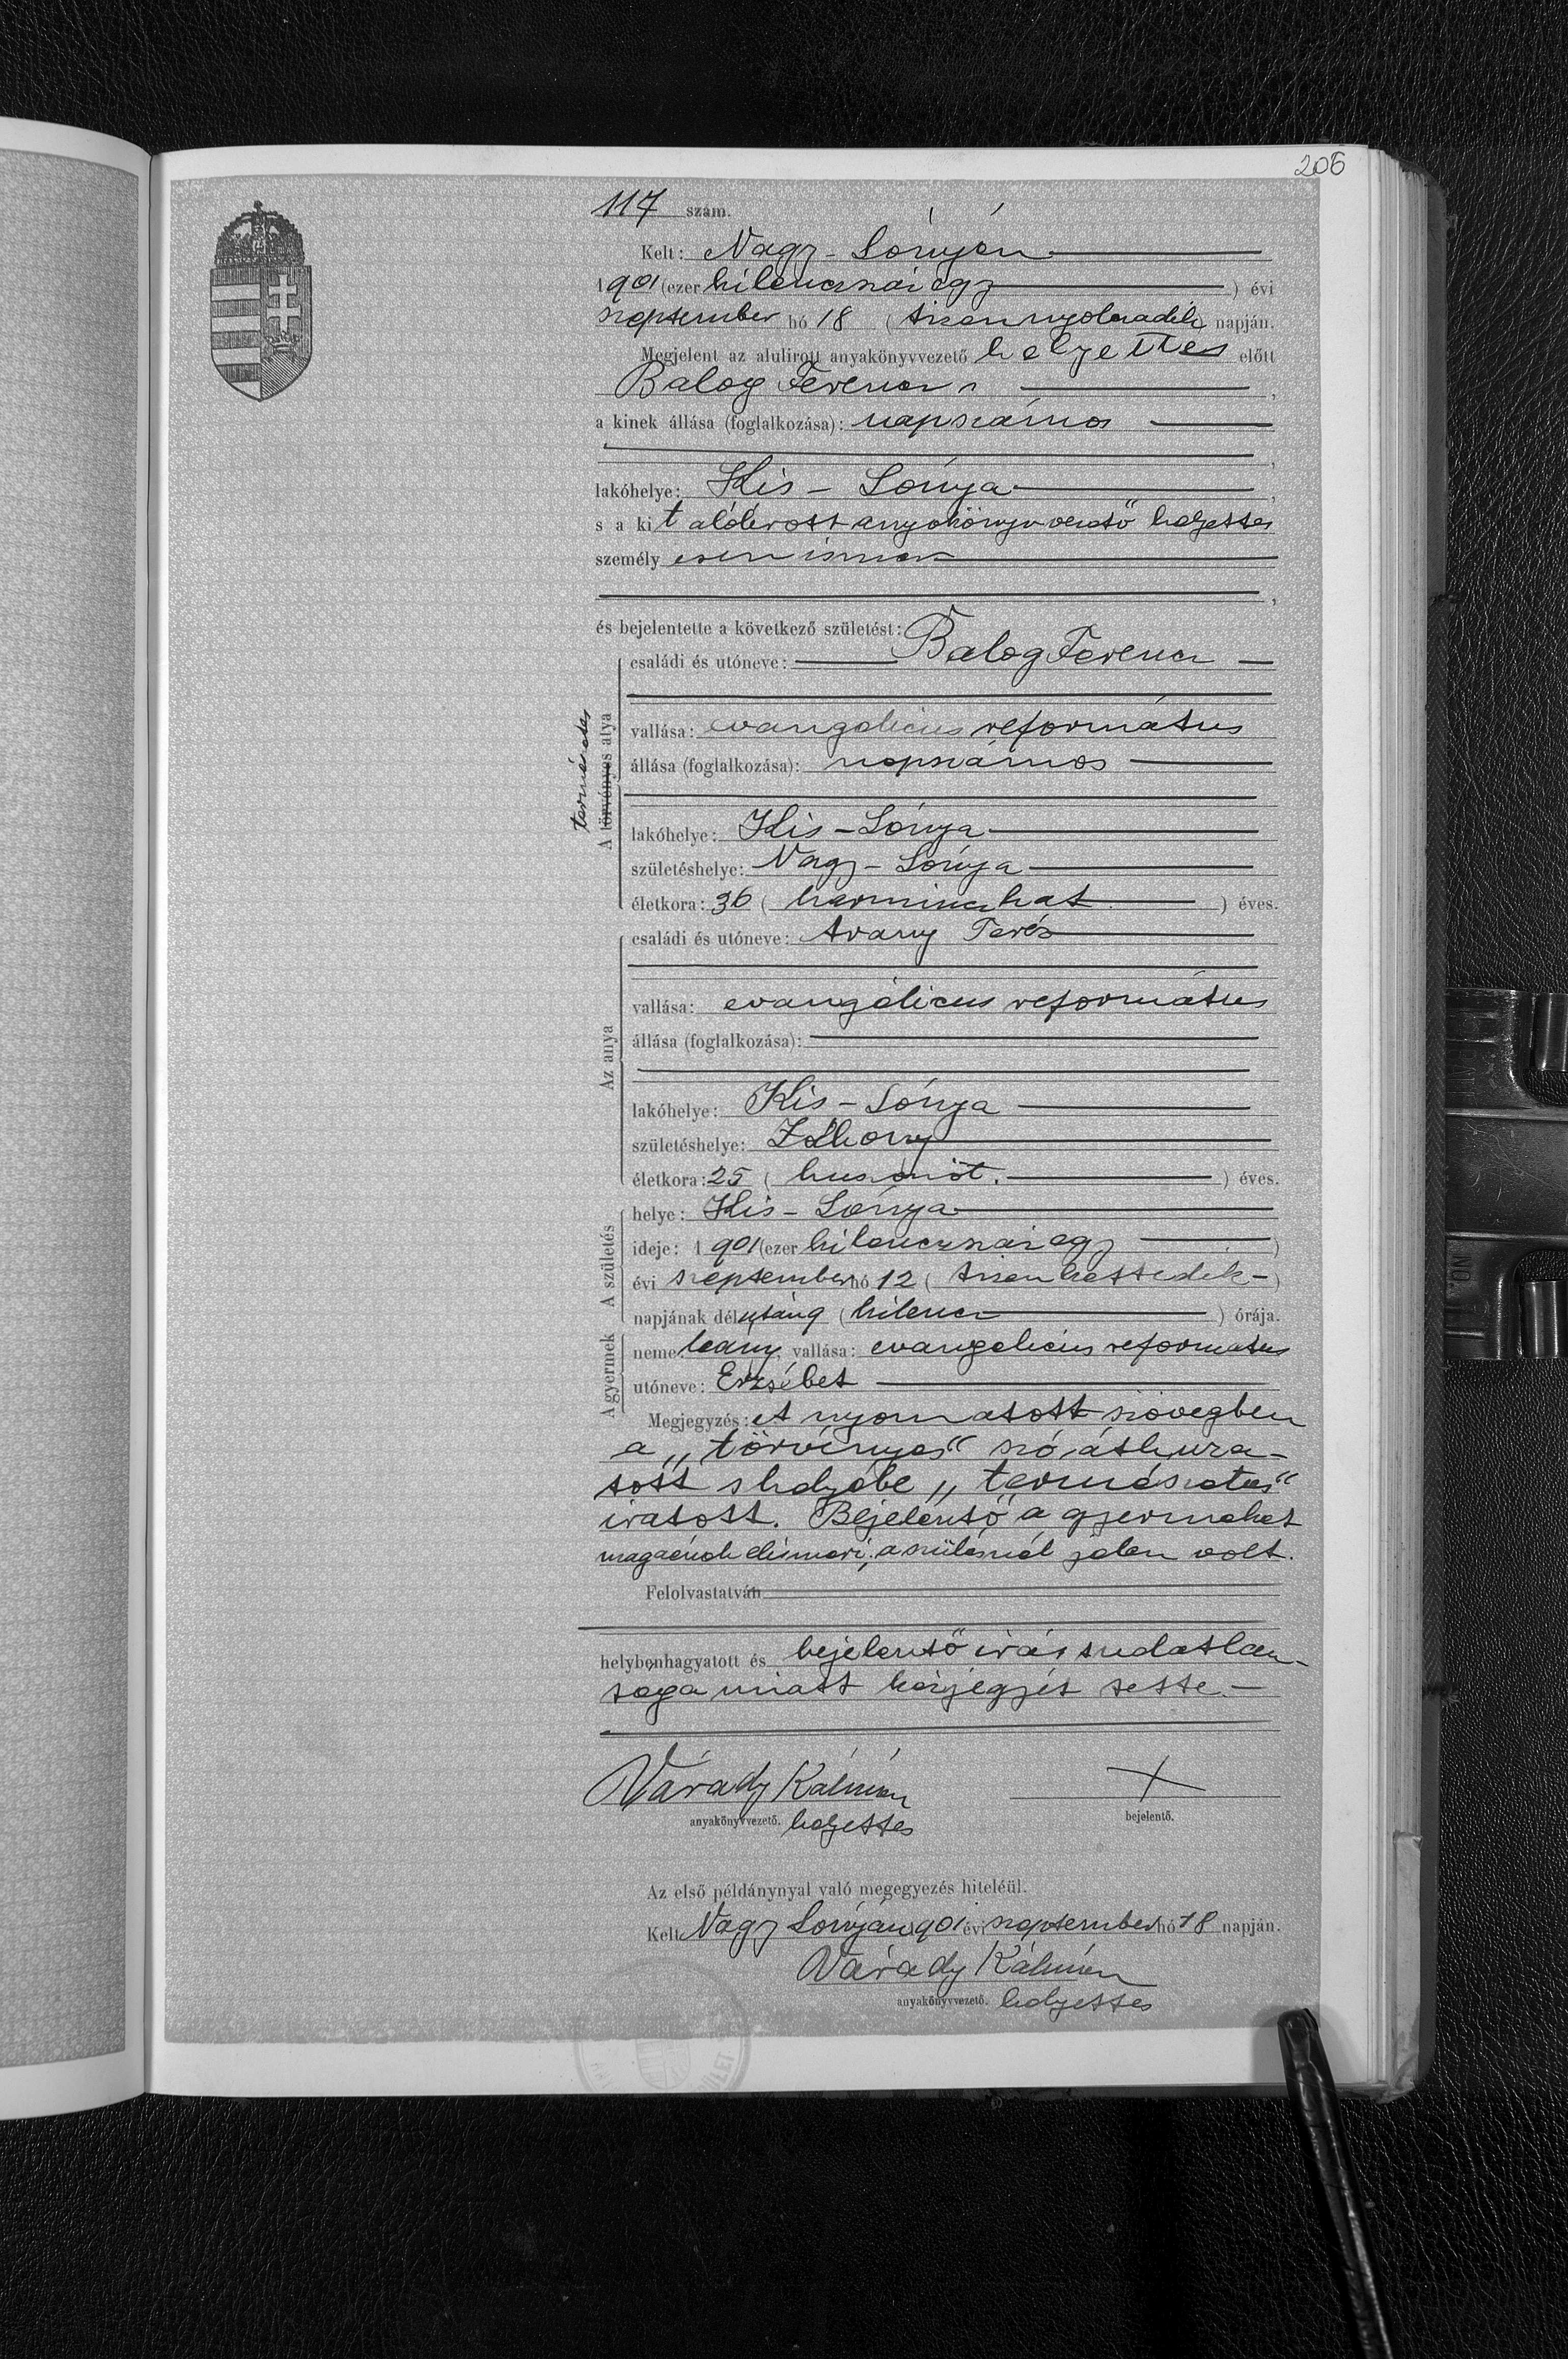 206
117 szám.
Kelt: Nagy-Lónyán
1901 (ezer kilenczszáz egy) évi
szeptember hó 18 (tizennyolczadik) napján.
Megjelent az alulirott anyakönyvvezető helyettes előtt
Balog Ferencz,
a kinek állása (foglalkozása): napszámos
,
lakóhelye: Kis-Lónya,
s a kit alólirott anyakönyvvezető helyettes
személyesen ismer
,
és bejelentette a következő születést:
természetes
A törvényes atya
családi és utóneve: Balog Ferencz
vallása: evangelicus református
állása (foglalkozása): napszámos
lakóhelye: Kis-Lónya
születéshelye: Nagy-Lónya
életkora: 36 (harminczhat) éves.
Az anya
családi és utóneve: Arany Teréz
vallása: evangélicus református
állása (foglalkozása):
lakóhelye: Kis-Lónya
születéshelye: Záhony
életkora: 25 (huszonöt.) éves.
A születés
helye: Kis-Lónya
ideje: 1901 (ezer kilenczszáz egy)
évi szeptember hó 12 (tizenkettedik)
napjának délután 9 (kilencz) órája.
A gyermek
neme: leány, vallása: evangelicus reformatus
utóneve: Erzsébet
Megjegyzés: A nyomatott szövegben
a „törvényes“ szó áthuza-
tott s helyébe „természetes“
iratott. Bejelentő a gyermeket
magáénak elismeri; a szülésnél jelen volt.
Felolvastatván
helybenhagyatott és bejelentő irástudatlan-
sága miatt kézjegyét tette.
Várady Kálmán
anyakönyvvezető. helyettes
X
bejelentő.
Az első példánynyal való megegyezés hiteléül.
Kelt Nagy Lónyán 1901 évi szeptember hó 18 napján.
Várady Kálmán
anyakönyvvezető. helyettes